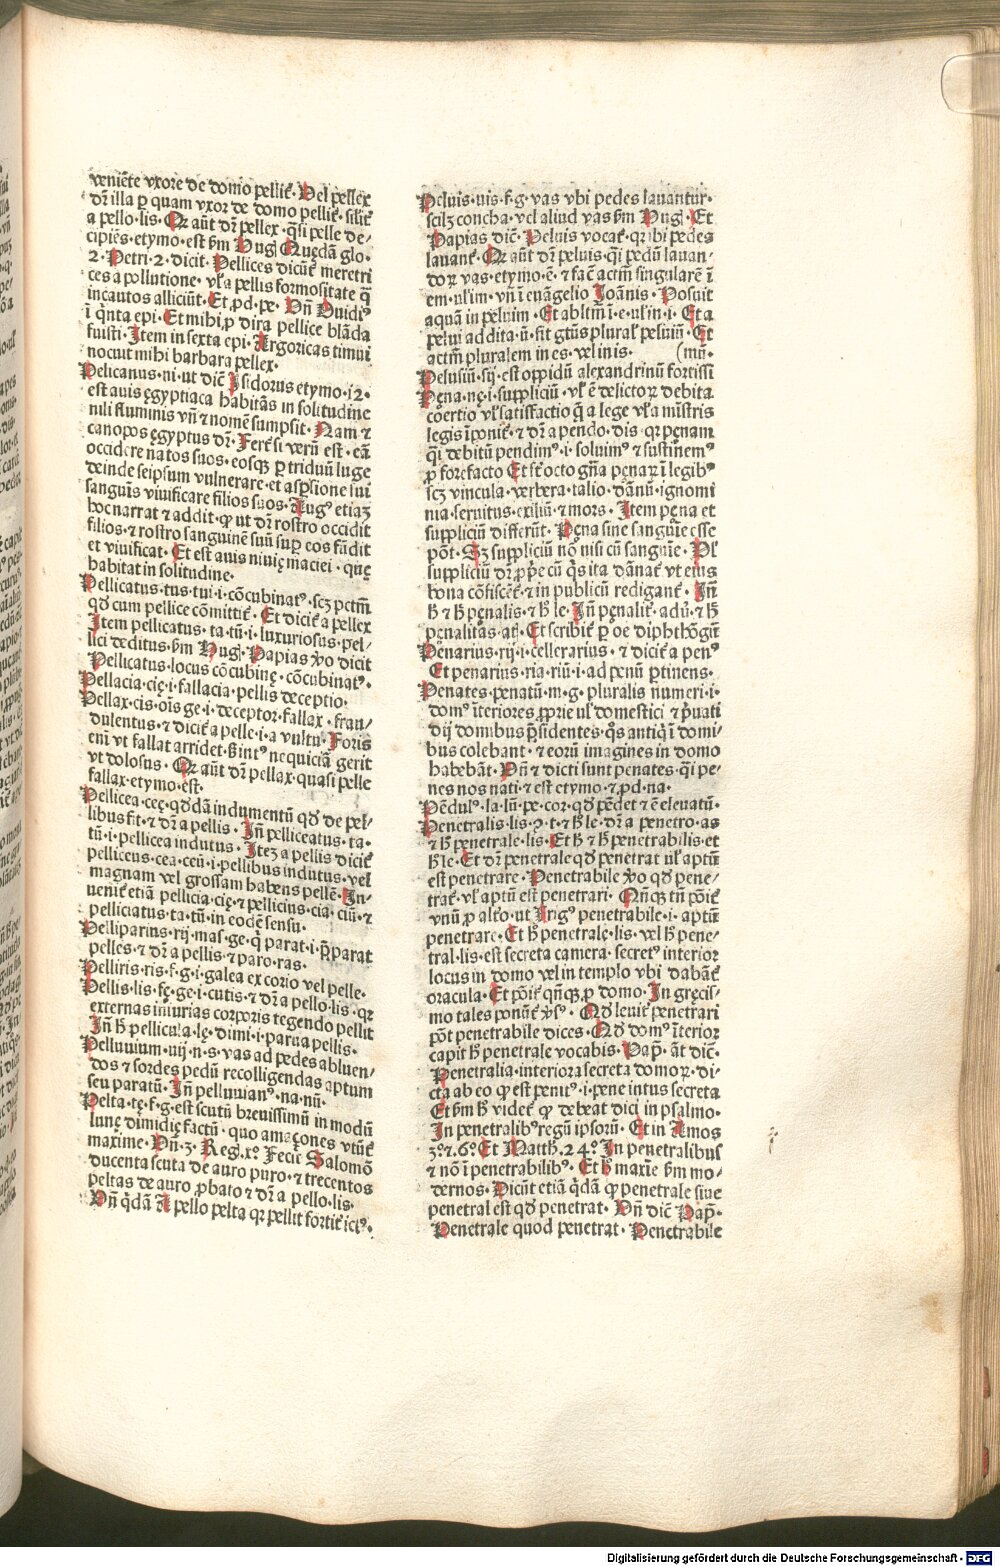 veniẽte vxore de domo pellit᷑· Vel pellex
dr̃ illa ꝑ quam vxor de domo pellit᷑· silit᷑
a pello·lis· Qr aũt dr̃ pellex·q̃si pelle de/
cipiẽs·etymo·est ẜm Hug̃ Quędã glo·
2·Petri·2·dicit· Pellices dicũt᷑ meretri
ces a pollutione·vl̃ a pellis formositate q̃
incautos alliciũt·Et ꝓd·pe· Vñ Ouidiꝰ
ĩ q̃nta epi·Et mihi ꝓ dira pellice blãda
fuisti·Item in sexta epi·Argoricas timui
nocuit mihi barbara pellex·
Pelicanus·ni·ut dic̃ Isidorus etymo·i2·
est auis ęgyptiaca habitãs in solitudine
nili fluminis vñ ⁊ nomẽ sumpsit·Nam ⁊
canopos ęgyptus dr̃·Fert᷑ si verũ est·eã
occidere natos suos·eosqꝫ ꝑ triduũ luge
deinde seipsum vulnerare·et aspsione sui
sanguĩs viuificare filios suos·Augꝰ etiaꝫ
hoc narrat ⁊ addit·ꝙ ut dr̃ rostro occidit
filios·⁊ rostro sanguinẽ suũ suꝑ eos fũdit
et viuificat· Et est auis nimię maciei·quę
habitat in solitudine·
Pellicatus·tus·tui·i·cõcubinatꝰ·scꝫ pctm̃
qd̃ cum pellice cõmittit᷑· Et dicit᷑ a pellex
Item pellicatus·ta·tũ·i·luxuriosus·pel/
lici deditus·ẜm Hug̃·Papias ꝟo dicit
Pellicatus·locus cõcubinę·cõcubinatꝰ·
Pellacia·cię·i·fallacia·pellis deceptio·
Pellax·cis·oĩs ge·i·deceptor·fallax·frau/
dulentus·⁊ dicit᷑ a pelle·i·a vultu·Foris
eni᷑ vt fallat arridet·ẜ intꝰ nequiciã gerit
vt dolosus· Qr aũt dr̃ pellax·quasi pelle
fallax·etymo·est·
Pellicea·ceę·qd̃dã indumentũ qd̃ de pel/
libus fit·⁊ dr̃ a pellis· Iñ pelliceatus·ta·
tũ·i·pellicea indutus· Iteꝫ a pellis dicit᷑
pelliceus·cea·ceũ·i·pellibus indutus·vel
magnam vel grossam habens pellẽ·In/
uenit᷑ etiã pellicia·cię·⁊ pellicius·cia·ciũ·⁊
pelliciatus·ta·tũ·in eodẽ sensu·
Pelliparius·rij·mas·ge·q̃ parat·i·p̃parat
pelles·⁊ dr̃ a pellis ⁊ paro·ras·
Pelliris·ris·f·g·i·galea ex corio vel pelle·
Pellis·lis·fę·ge·i·cutis·⁊ dr̃ a pello·lis·qr
externas iniurias corporis tegendo pellit
Iñ h̃ pellicula·lę·dimi·i·parua pellis·
Pelluuium·uij·n·s·vas ad pedes abluen/
dos ⁊ sordes pedũ recolligendas aptum
seu paratũ· Iñ pelluuianꝰ·na·nũ·
Pelta·tę·f·g·est scutũ breuissimũ in modũ
lunę dimidię factũ·quo amaçones vtũt᷑
maxime· Vñ·3· Reg·x? Fecit Salomõ
ducenta scuta de auro puro·⁊ trecentos
peltas de auro ꝓbato ⁊ dr̃ a pello·lis·
Vñ q̃dã A pello pelta qr pellit fortit᷑ ictꝰ·
Peluis·uis·f·g·vas vbi pedes lauantur·
scilꝫ concha·vel aliud vas ẜm Hug̃ Et
Papias dic̃· Peluis vocat᷑·qr ibi pedes
lauant᷑· Qr aũt dr̃ peluis·q̃si pedũ lauan·
doꝝ vas·etymo·ẽ·⁊ fac̃ actm̃ singularẽ ĩ
em·ul̃im·vñ ĩ euãgelio Ioãnis· Posuit
aquã in peluim·Et abltm̃ ĩ·e·ul̃ in·i·Et a
pelui addita·ũ·fit gt̃us plural᷑ peluiũ· Et
actm̃ pluralem in es·vel inis· (mũ·
Pelusiũ·sij·est oppidũ alexandrinũ fortissi
Pęna·nę·i·suppliciũ·vl̃ ẽ delictoꝝ debita
coertio vl̃ satisfactio q̃ a lege vl̃ a mĩstris
legis ĩponit᷑·⁊ dr̃ a pendo·dis·qr pęnam
q̃i debitũ pendimꝰ·i·soluimꝰ ⁊ sustinemꝰ
ꝓ forefacto Et st᷑ octo gñã pęnaꝝ ĩ legibꝰ
scꝫ vincula·verbera·talio·dãnũ·ignomi
nia·seruitus·exiliũ·⁊ mors· Item pęna et
suppliciũ differũt· Pęna sine sanguĩe esse
põt·Sꝫ suppliciũ nõ nisi cũ sanguĩe· Vl̃
suppliciũ dr̃ ꝓpe cũ q̃s ita dãnat᷑ vt eius
bona cõfiscẽt᷑·⁊ in publicũ redigant᷑· Iñ
h̃ ⁊ h̃ pęnalis·⁊ h̃ le· Iñ pęnalit᷑·adũ·⁊ h̃
pęnalitas·at̃· Et scribit᷑ ꝑ oe diphthõgũ
Penarius·rij·i·cellerarius·⁊ dicit᷑ a penꝰ
Et penarius·ria·riũ·i·ad penũ ꝑtinens·
Penates·penatũ·m·g·pluralis numeri·i·
domꝰ ĩteriores ꝓprie ul̃ domestici ⁊ p̃uati
dij domibus p̃sidentes·q̃s antiq̃ ĩ domi
bus colebant·⁊ eorũ imagines in domo
habebãt· Vñ ⁊ dicti sunt penates·q̃i pe·
nes nos nati·⁊ est etymo·⁊ ꝓd·na·
Pẽdulꝰ·la·lũ·pe·cor·qd̃ pẽdet ⁊ ẽ eleuatũ·
Penetralis·lis·ꝯ·t·⁊ h̃ le·dr̃ a penetro·as
⁊ h̃ penetrale·lis·Et h̃ ⁊ h̃ penetrabilis·et
h̃ le·Et dr̃ penetrale qd̃ penetrat ul̃ aptũ
est penetrare· Penetrabile ꝟo qd̃ pene/
trat᷑·vl̃ aptũ est penetrari· Qñqꝫ tñ põit᷑
vnũ ꝓ alt᷑o·ut Frigꝰ penetrabile·i·aptũ
penetrare·Et h̃ penetralę·lis·vel h̃ pene/
tral·lis·est secreta camera·secretꝰ interior
locus in domo vel in templo vbi dabãt᷑
oracula·Et põit᷑ qñqꝫ ꝓ domo·In gręcis/
mo tales ponũt᷑ ꝟsꝰ· Qd̃ leuit᷑ penetrari
põt penetrabile dices· Qd̃ domꝰ ĩterior
capit h̃ penetrale vocabis· Pap̃· ãt dic̃·
Penetralia·interiora secreta domoꝝ·di·
cta ab eo ꝙ est penitꝰ·i·pene intus secreta
Et ẜm h̃ videt᷑ ꝙ debeat dici in psalmo·
In penetralibꝰ regũ ipsorũ· Et in Amos
3?⁊·6? Et Matth·24? In penetralibus
⁊ nõ ĩ penetrabilibꝰ· Et h̃ maxĩe ẜm mo/
dernos· Dicũt etiã q̃dã ꝙ penetrale siue
penetral est qd̃ penetrat· Vñ dic̃ Pap̃·
Penetrale quod penetrat· Penetrabile
Digitalisierung gefördert durch die Deutsche Forschungsgemeinschaft - DFG